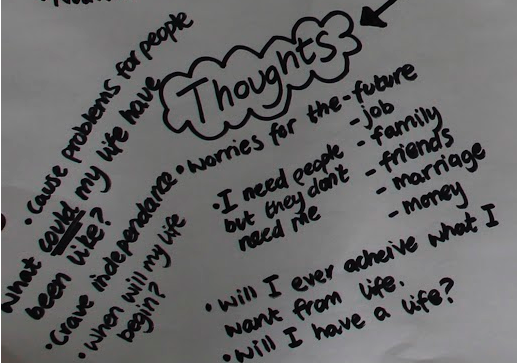 Thoughts
• Cause problems for people
What could my life have
been like?
• Crave independance
• When will my life
begin?
• Worries for the - future
- job
- family
- friends
- marriage
- money
• I need people
but they don't
need me
• Will I ever acheive what I
want from life.
• Will I have a life?